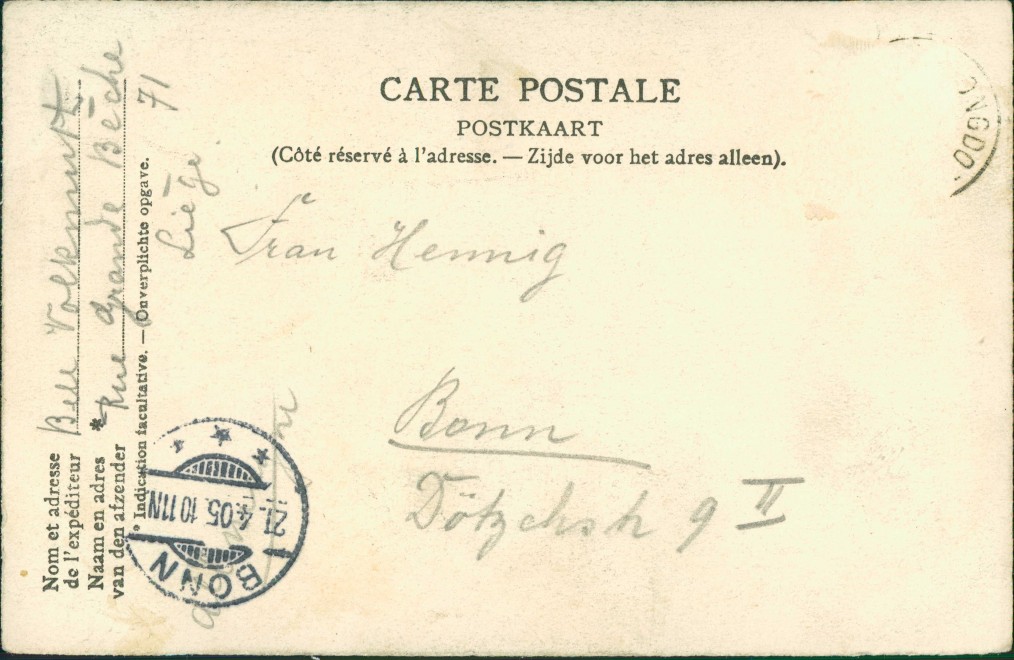 CARTE POSTALE
POSTKAART
(Côté réservé à l'adresse. — Zijde voor het adres alleen).
NGDO
Frau Hennig
Bonn
9 II
Nom et adresse
de l'expéditeur
Naam en adres
van den afzender
* Indication facultative. — Onverplichte opgave.
Volkmuth
* Rue Grande Bêche
71
Liège
BONN
21.4.05.10-11N